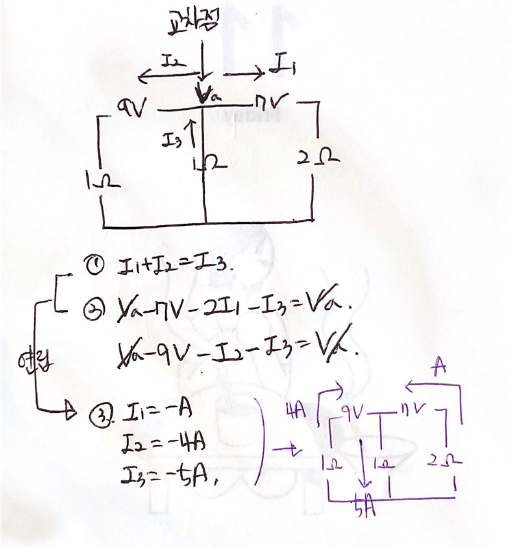 교차점
I₂
I₁
9V
Va
7V
I₃
1Ω
1Ω
2Ω
① I₁+I₂=I₃.
② Va-7V-2I₁-I₃=Va.
Va-9V-I₂-I₃=Va.
연립
③. I₁=-A
I₂=-4A
I₃=-5A,
A
4A
9V
7V
1Ω
1Ω
2Ω
5A